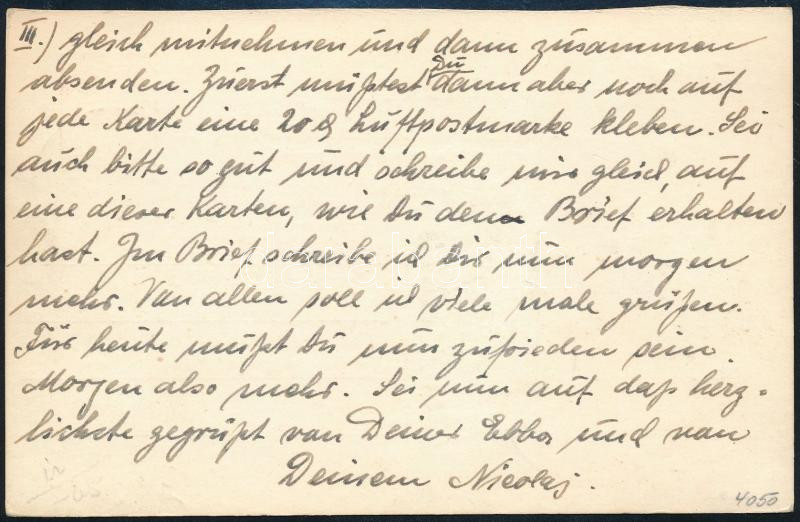 III.) gleich mitnehmen und dann zusammen
absenden. Zuerst mußtest Du dann aber noch auf
jede Karte eine 20 Luftpostmarke kleben. Sei
auch bitte so gut und schreibe mir gleich, auf
eine dieser Karten, wie Du den Brief erhalten
hast. Im Brief schreibe ich Dir nun morgen
mehr. Von allen soll ich viele male grüßen.
Für heute mußt Du nun zufrieden sein.
Morgen also mehr. Sei nun auf daß herz-
lichste gegrüßt von Deiner Ebba und von
Deinem Nicolaj.
4050